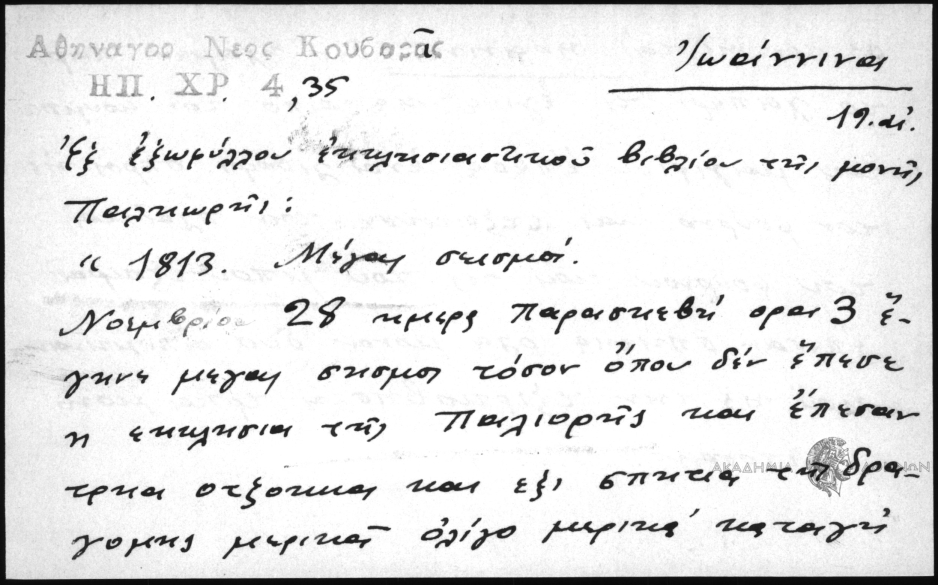 Αθηναγορ Νεος Κουβαρᾶς
ΗΠ. ΧΡ. 4, 35
Ἰωάννινα
19. αἰ.
Ἐξ ἐξωφύλλου ἐκκλησιαστικοῦ βιβλίου τῆς μονῆς
Παλιωρῆς:
“ 1813. Μέγας σεισμός.
Νοεμβρίου 28 ημερα παρασκεβή ορα 3 ἔ-
γηνε μεγας σησμος τόσον ὅπου δέν ἔπεσε
η εκκλησια τῆς Παλιορῆς και ἔπεσαν
τρια οτζακια και εξι σπητια τη δρα-
γομης μερικά ὀλίγο μερικά καταγή
ΑΚΑΔΗΜΙΑ ΑΘΗΝΩΝ